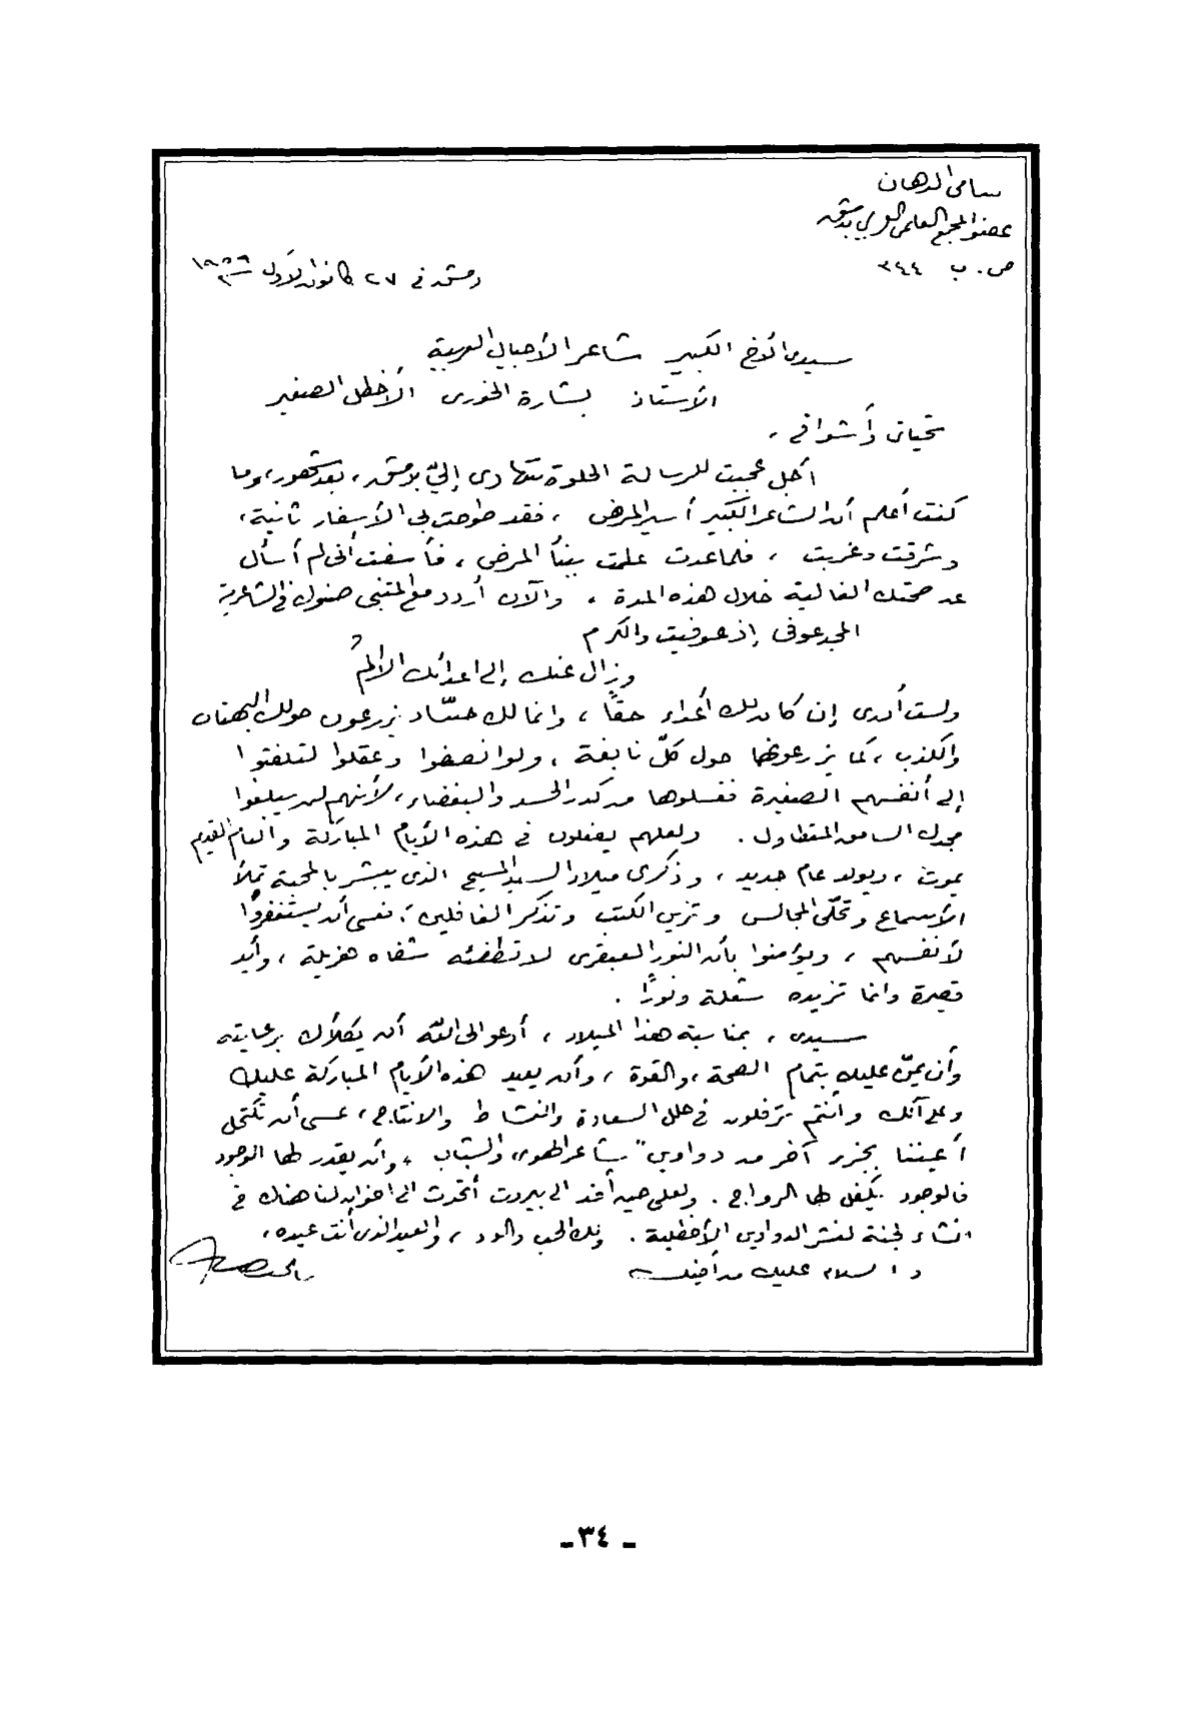 سامي الدهان
عضو المجمع العلمي العربي بدمشق
ص. ب ٣٤٤
دمشق في ٢٧ كانون الأول ١٩٥٦
سيدي الأخ الكبير شاعر الأجيال العربية
الأستاذ بشارة الخوري الأخطل الصغير
تحياتي وأشواقي ،
أجل عجبت للرسالة الحلوة تتهادى إليّ بدمشق ، بعد شهور ، وما
كنت أعلم أن الشاعر الكبير أسير المرض ، فقد طوحت بي الأسفار ثانية ،
وشرقت وغربت ، فلما عدت علمت بنبأ المرض ، فأسفت أني لم أسأل
عن صحتك الغالية خلال هذه المدة ، والآن أردد مع المتنبي صنوك في الشاعرية
المجد عوفي إذ عوفيت والكرم
وزال عنك إلى اعدائك الألمُ
ولست أدري إن كان لك أعداء حقاً ، وانما لك حسّاد يزرعون حولك البهتان
والكذب ، كما يزرعونهما حول كلّ نابغة ، ولو انصفوا وعقلوا لتلفتوا
إلى أنفسهم الصغيرة فغسلوها من كدر الحسد والبغضاء ، لأنهم لن يبلغوا
مجدك السامق المتطاول . ولعلهم يفعلون في هذه الأيام المباركة والعام القديم
يموت ، ويولد عام جديد ، وذكرى ميلاد السيد المسيح الذي يبشر بالمحبة تملأ
الأسماع وتحلّي المجالس وتزين الكتب وتذكر الغافلين ، فعسى أن يستغفروا
لأنفسهم ، ويؤمنوا بأن النور العبقري لا تطفئه شفاه هزيلة ، وأيد
قصيرة وانما تزيده شعلة ونوراً .
سيدي ، بمناسبة هذا الميلاد ، أدعو الى الله أن يكلأك برعايته
وأن يمنّ عليك بتمام الصحة ، والقوة ، وأن يعيد هذه الأيام المباركة عليك
وعلى آلك وأنتم ترفلون في حلل السعادة والنشاط والانتاج ، عسى أن تكتحل
أعيننا بجزء آخر من دواوين " شاعر الهوى والشباب " وأن يقدر لها الوجود
فالوجود يكفل لها الرواج . ولعلي حين أفد الى بيروت أتحدث الى اخوان لنا هناك في
انشاء لجنة لنشر الدواوين الأخطلية . ولك الحب والود ، والعيد الذي أنت عيده ،
و السلام عليك من أخيك
ـ ٣٤ ـ